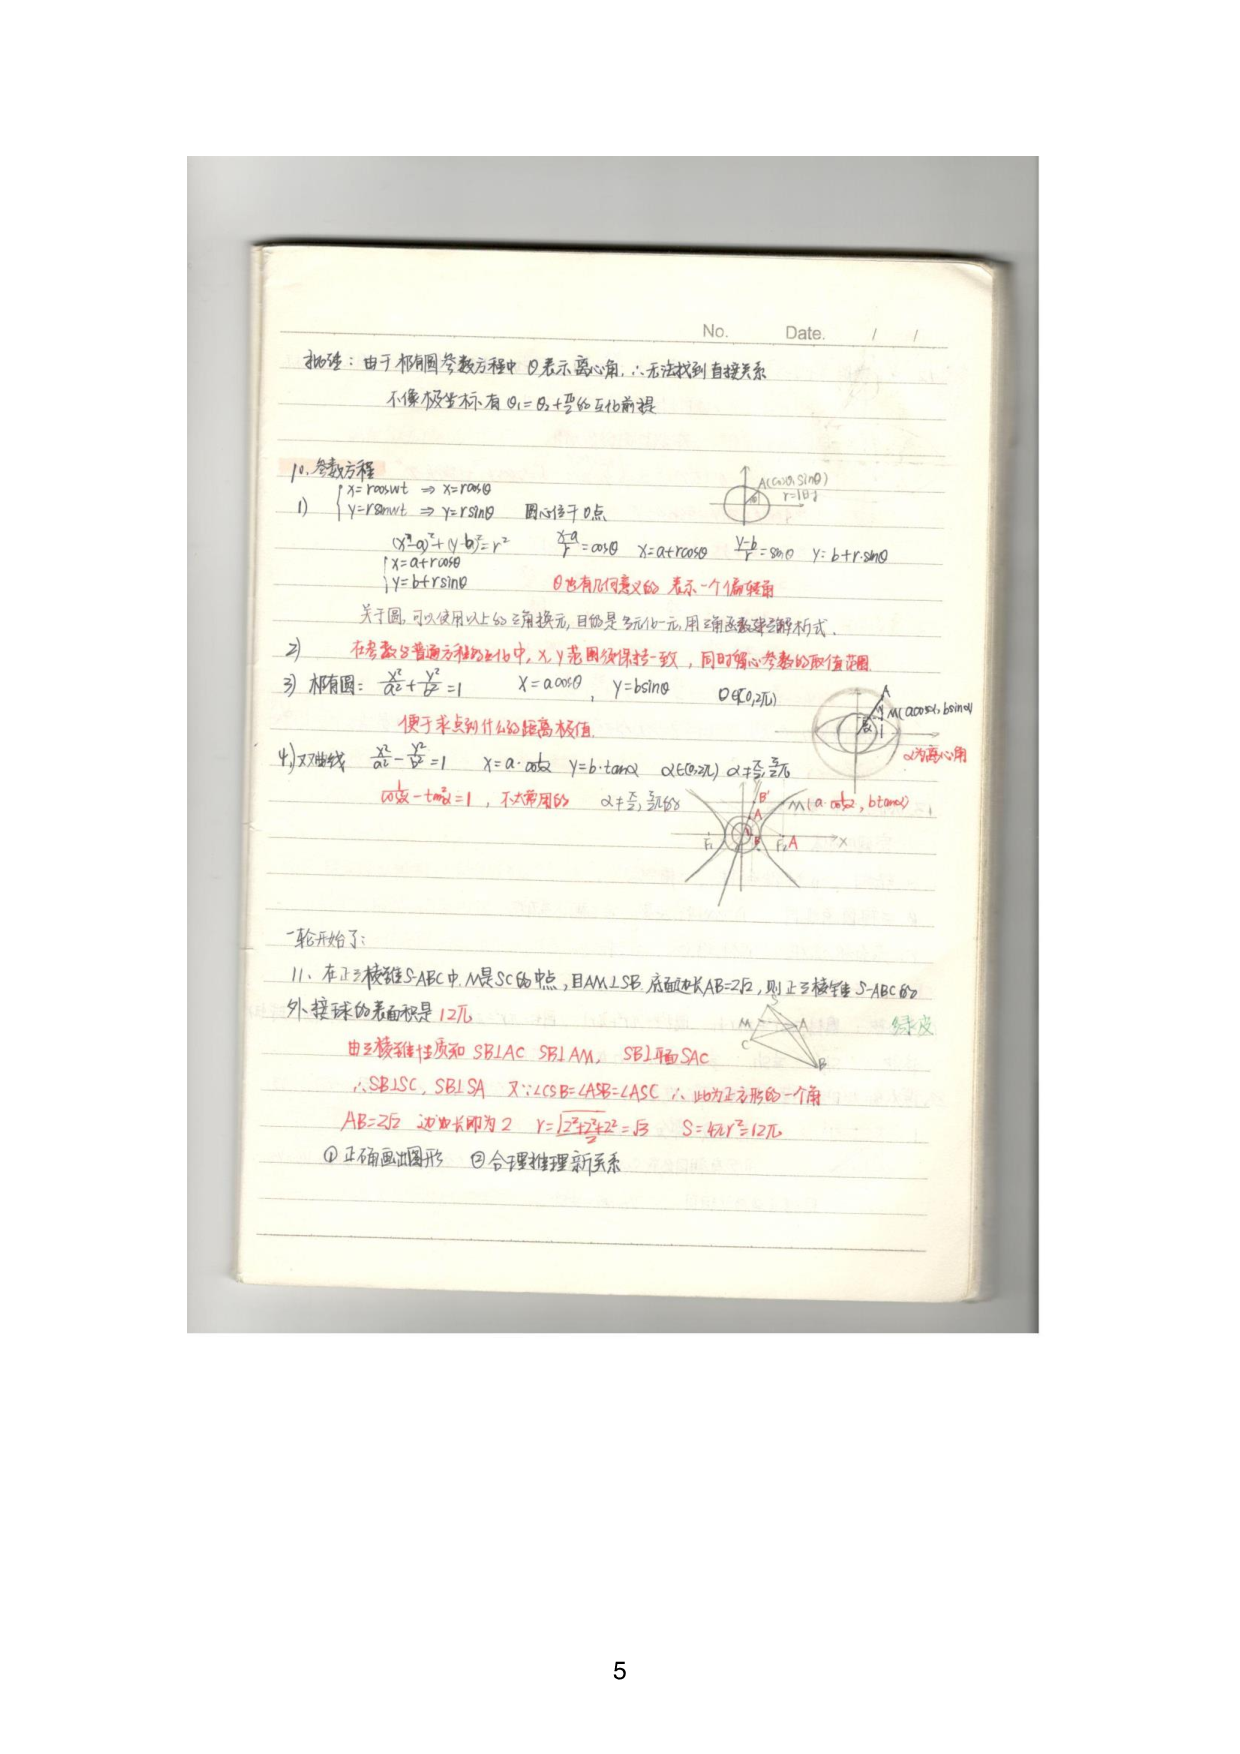 No. Date. / /
批注：由于椭圆参数方程中 θ表示离心角，∴无法找到直接关系
不像极坐标有 θ₁=θ₂+π/2的互化前提
10.参数方程
A(cosθ, sinθ)
x=rcoswt ⇒ x=rcosθ
r=1时
1) y=rsinwt ⇒ y=rsinθ 圆心位于0点
(x-a)²+(y-b)²=r² (x-a)/r=cosθ x=a+rcosθ (y-b)/r=sinθ y=b+r·sinθ
x=a+rcosθ
y=b+rsinθ θ也有几何意义的 表示一个偏转角
关于圆，可以使用以上的三角换元，目的是多元化一元，用三角函数解析式.
2) 在参数与普通方程的互化中，x,y范围须保持一致，同时留心参数的取值范围
3) 椭圆： x²/a²+y²/b²=1 x=acosθ, y=bsinθ θ∈[0,2π)
A
M(acosα, bsinα)
便于求点到什么的距离极值.
α为离心角
4.)双曲线 x²/a²-y²/b²=1 x=a·1/cosα y=b·tanα α∈[0,2π) α≠π/2, 3/2π
1/cos²α-tan²α=1，不太常用的 α≠π/2, 3/2π的
B' M(a·1/cosα, btanα)
A
F₁ B F₂ A x
一轮开始了：
11、在正三棱锥S-ABC中，M是SC的中点，且AM⊥SB，底面边长AB=2√2，则正三棱锥 S-ABC的
外接球的表面积是12π
S
M A
C
B
绿皮
由三棱锥性质知 SB⊥AC SB⊥AM， SB⊥平面SAC
∴SB⊥SC，SB⊥SA 又∵∠CSB=∠ASB=∠ASC ∴此为正方形的一个角
AB=2√2 边长即为2 r=√(2²+2²+2²)/2=√3 S=4πr²=12π
①正确画出图形 ②合理推理新关系
5